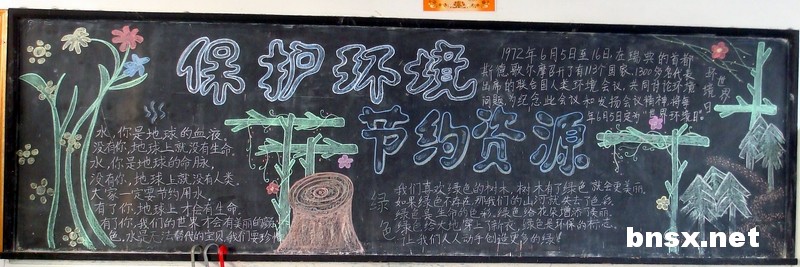 保护环境
节约资源
1972年6月5日至16日,在瑞典的首都
斯德歌尔摩召开了有113个国家,1300多名代表
出席的联合国人类环境会议,共同讨论环境
问题,为纪念此会议和发扬会议精神,将每
年6月5日定为"世界环境日"。
世界
环境日
水,你是地球的血液,
没有你,地球上就没有生命。
水,你是地球的命脉,
没有你,地球上就没有人类。
大家一定要节约用水,
有了你,地球上才会有生命,
有了你,我们的世界才会有美丽的
色,水是无法替代的宝贝,我们要珍惜
绿色
我们喜欢绿色的树木,树木有了绿色,就会更美丽,
如果绿色不存在,那我们的山河就失去了色彩,
绿色是生命的色彩,绿色给花朵增添了美丽,
绿色给大地穿上了新衣,绿色是环保的标志,
让我们人人动手创造更多的绿!
bnsx.net